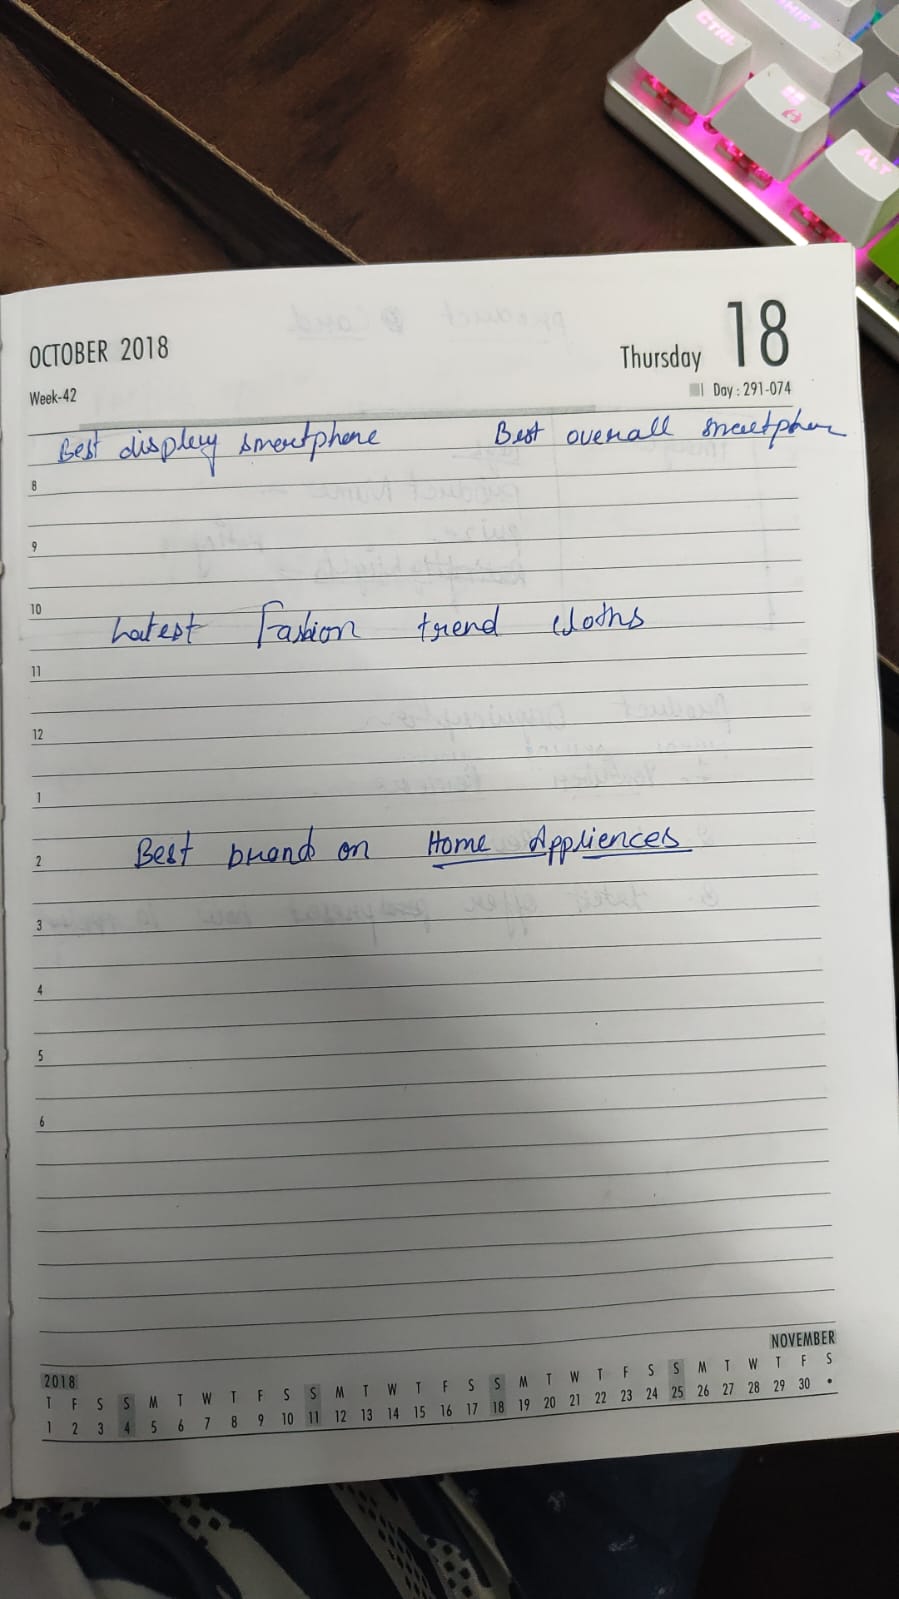 CTRL
SHIFT
ALT
Z
OCTOBER 2018
Thursday 18
Week-42
Day : 291-074
Best display smartphone Best overall smartphone
8
9
10
Latest Fashion trend cloths
11
12
1
Best brand on Home Appliences
2
3
4
5
6
NOVEMBER
2018
T F S S M T W T F S S M T W T F S S M T W T F S S M T W T F S
1 2 3 4 5 6 7 8 9 10 11 12 13 14 15 16 17 18 19 20 21 22 23 24 25 26 27 28 29 30 •